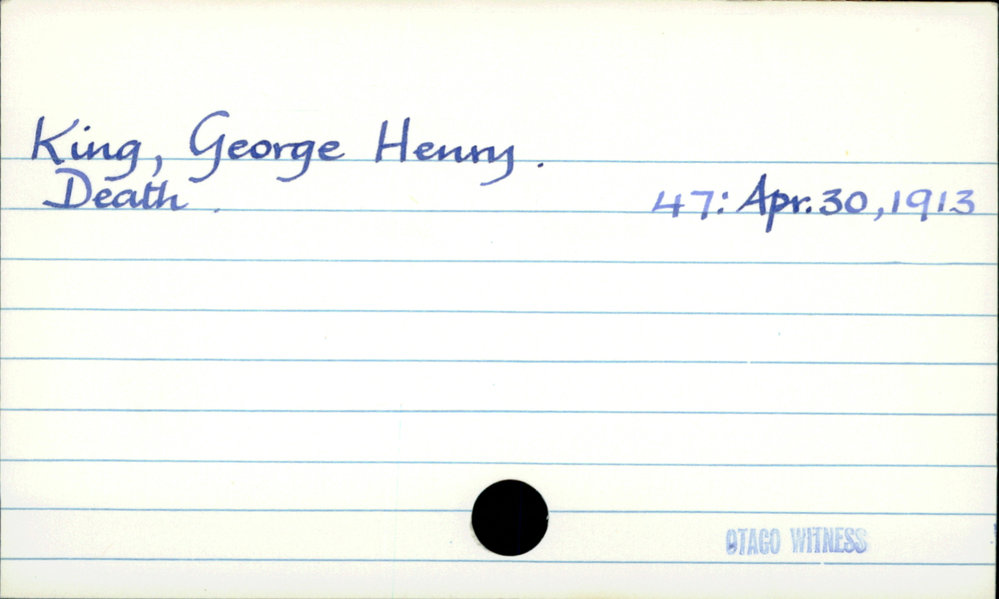 King, George Henry.
Death. 47: Apr. 30, 1913
OTAGO WITNESS